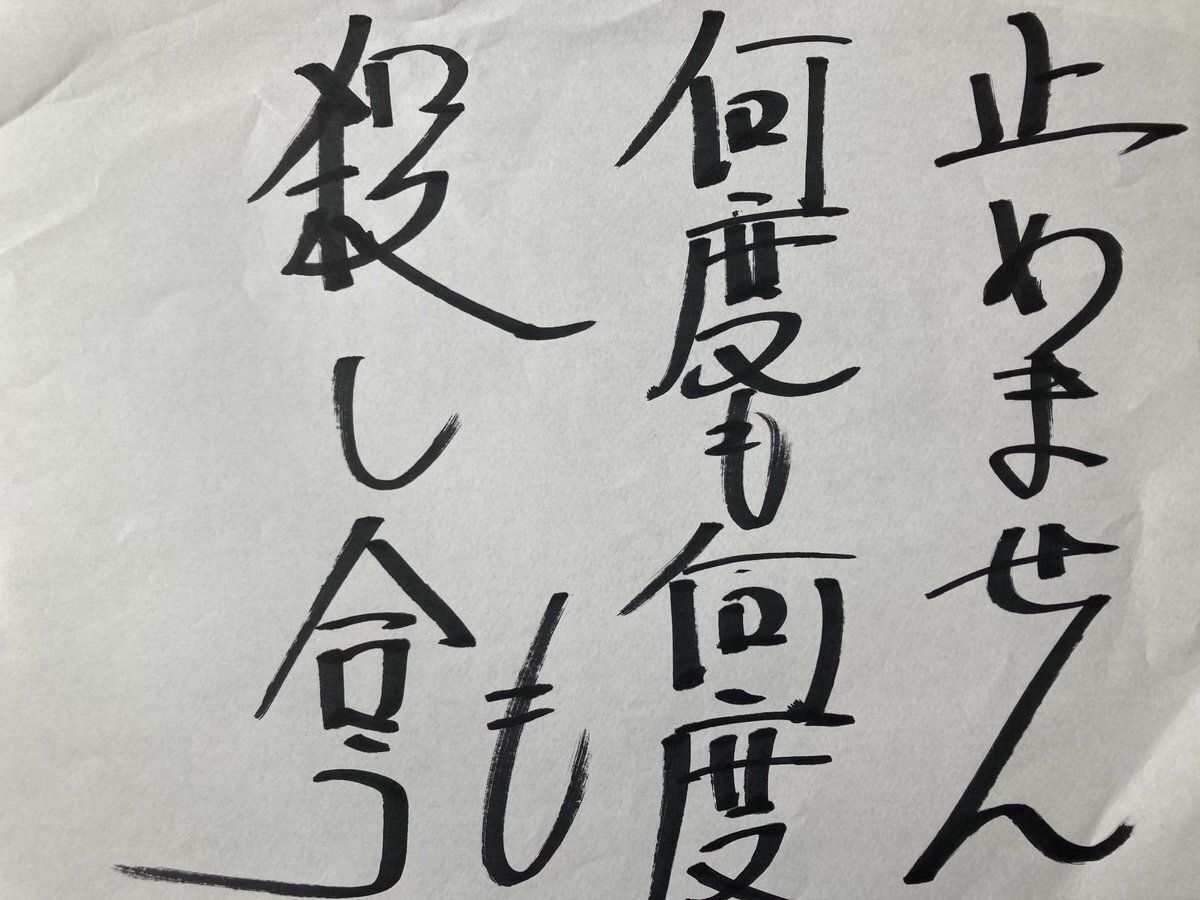 止めません
何度も何度
も
殺し合う